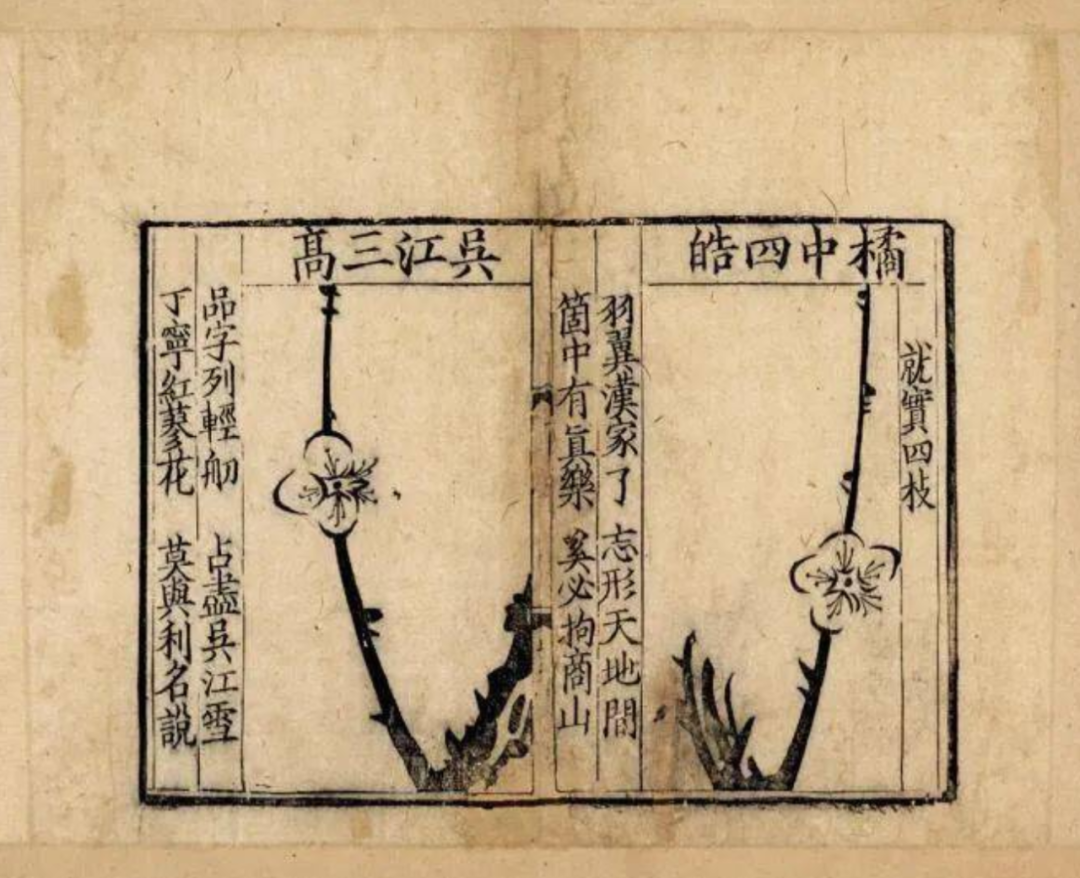 就實四枝
橘中四皓
羽翼漢家了 忘形天地間
箇中有眞樂 奚必拘商山
吳江三高
品字列輕舠 占盡吳江雪
丁寧紅蓼花 莫與利名說